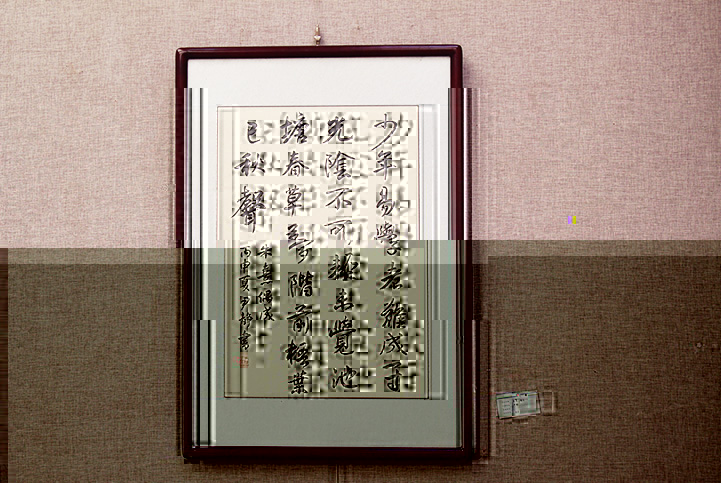 少年易學老難成一寸
光陰不可輕未覺池
塘春草夢階前梧葉
已秋聲
朱熹偶成
丙申